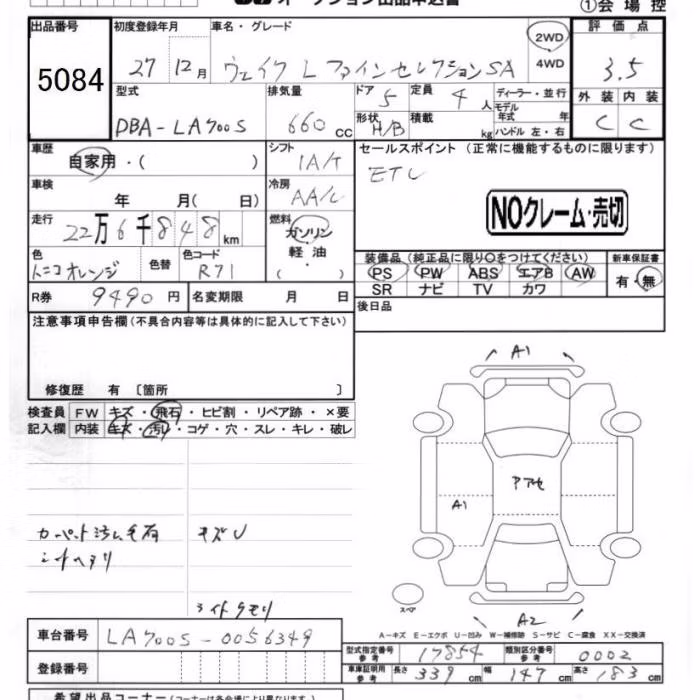 オークション出品申込書
①会場控
出品番号 初度登録年月 車名・グレード 評価点
5084 27 12月 ウェイク L ファインセレクションSA 2WD 4WD 3.5
型式 排気量 ドア 定員 ディーラー・並行 外装 内装
DBA-LA700S 660cc 5 4人 モデル年式 年 C C
形状 H/B 積載 kg ハンドル 左・右
車歴 自家用・( ) シフト IA/T セールスポイント (正常に機能するものに限ります)
車検 年 月( 日) 冷房 AA/C ETC
NOクレーム・売切
走行 22万6千848km 燃料 ガソリン 軽油 ( )
色 トニコオレンジ 色替 色コード R71
装備品(純正品に限り○をつけてください) 新車保証書
PS PW ABS エアB AW 有・無
SR ナビ TV カワ
R券 9490円 名変期限 月 日 後日品
注意事項申告欄(不具合内容等は具体的に記入して下さい)
修復歴 有 〔箇所 〕
検査員 FW キズ・飛石・ヒビ割・リペア跡・×要
記入欄 内装 キズ・汚レ・コゲ・穴・スレ・キレ・破レ
A1
A1
カーペット汚レ毛有 キズU
シートヘタリ
ライトクモリ
スペア
A2
A-キズ E-エクボ U-凹み W-補修跡 S-サビ C-腐食 XX-交換済
車台番号 LA700S-0056349
型式指定番号 参考 17854 類別区分番号 参考 0002
登録番号
車庫証明用 参考 長さ 339cm 幅 147cm 高さ 183cm
希望出品コーナー(コーナーは各会場により異なります)